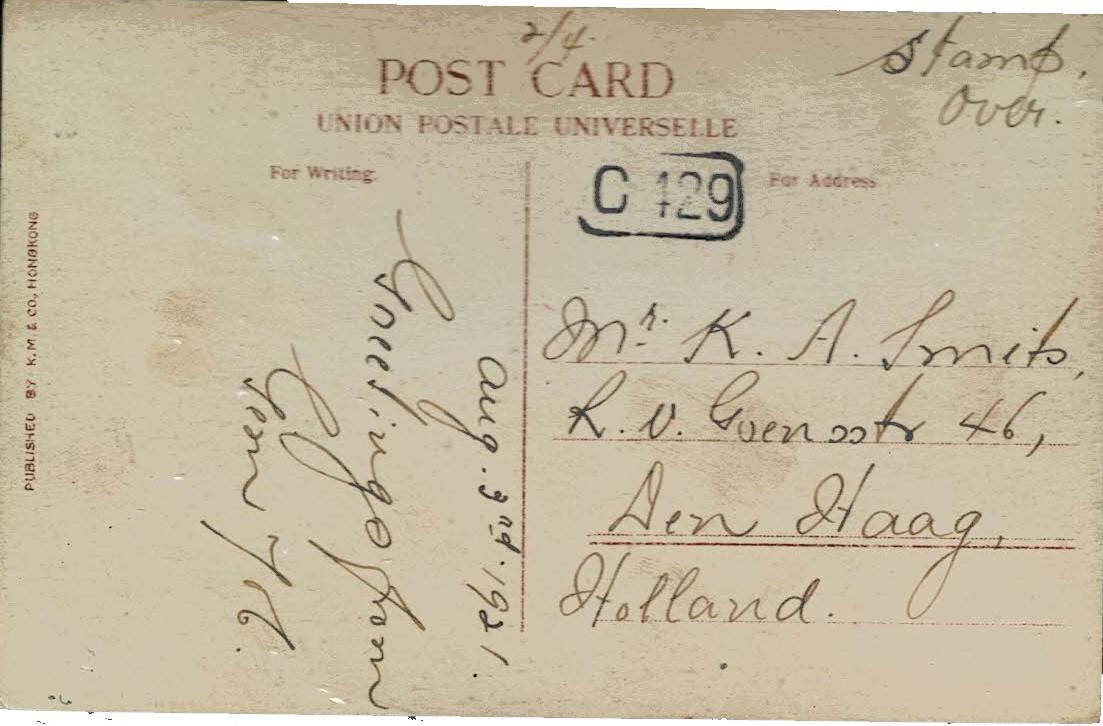 2/4.
Stamp.
over.
POST CARD
UNION POSTALE UNIVERSELLE
For Writing.
For Address
C 129
PUBLISHED BY K. M. & CO., HONGKONG
Aug. 3rd. 1921.
Greetings from
Mr. K. A. Smits,
R. v. Goensstr 46,
Den Haag,
Holland.